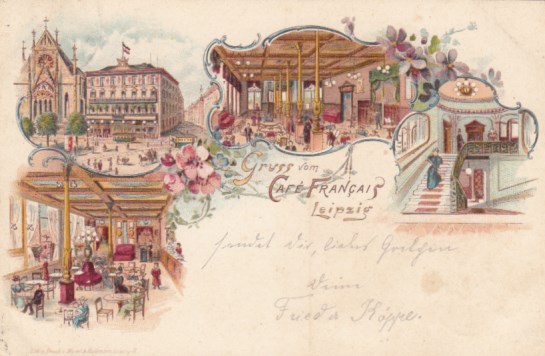 Gruss vom
CAFÉ FRANÇAIS
Leipzig
sendet dir, liebes Gretchen
Deine
Frieda Köppe.